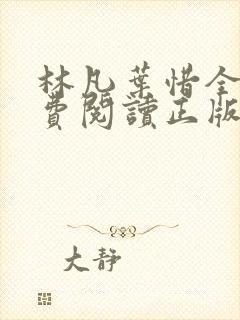 林凡葉惜全
費閱讀正版
大靜